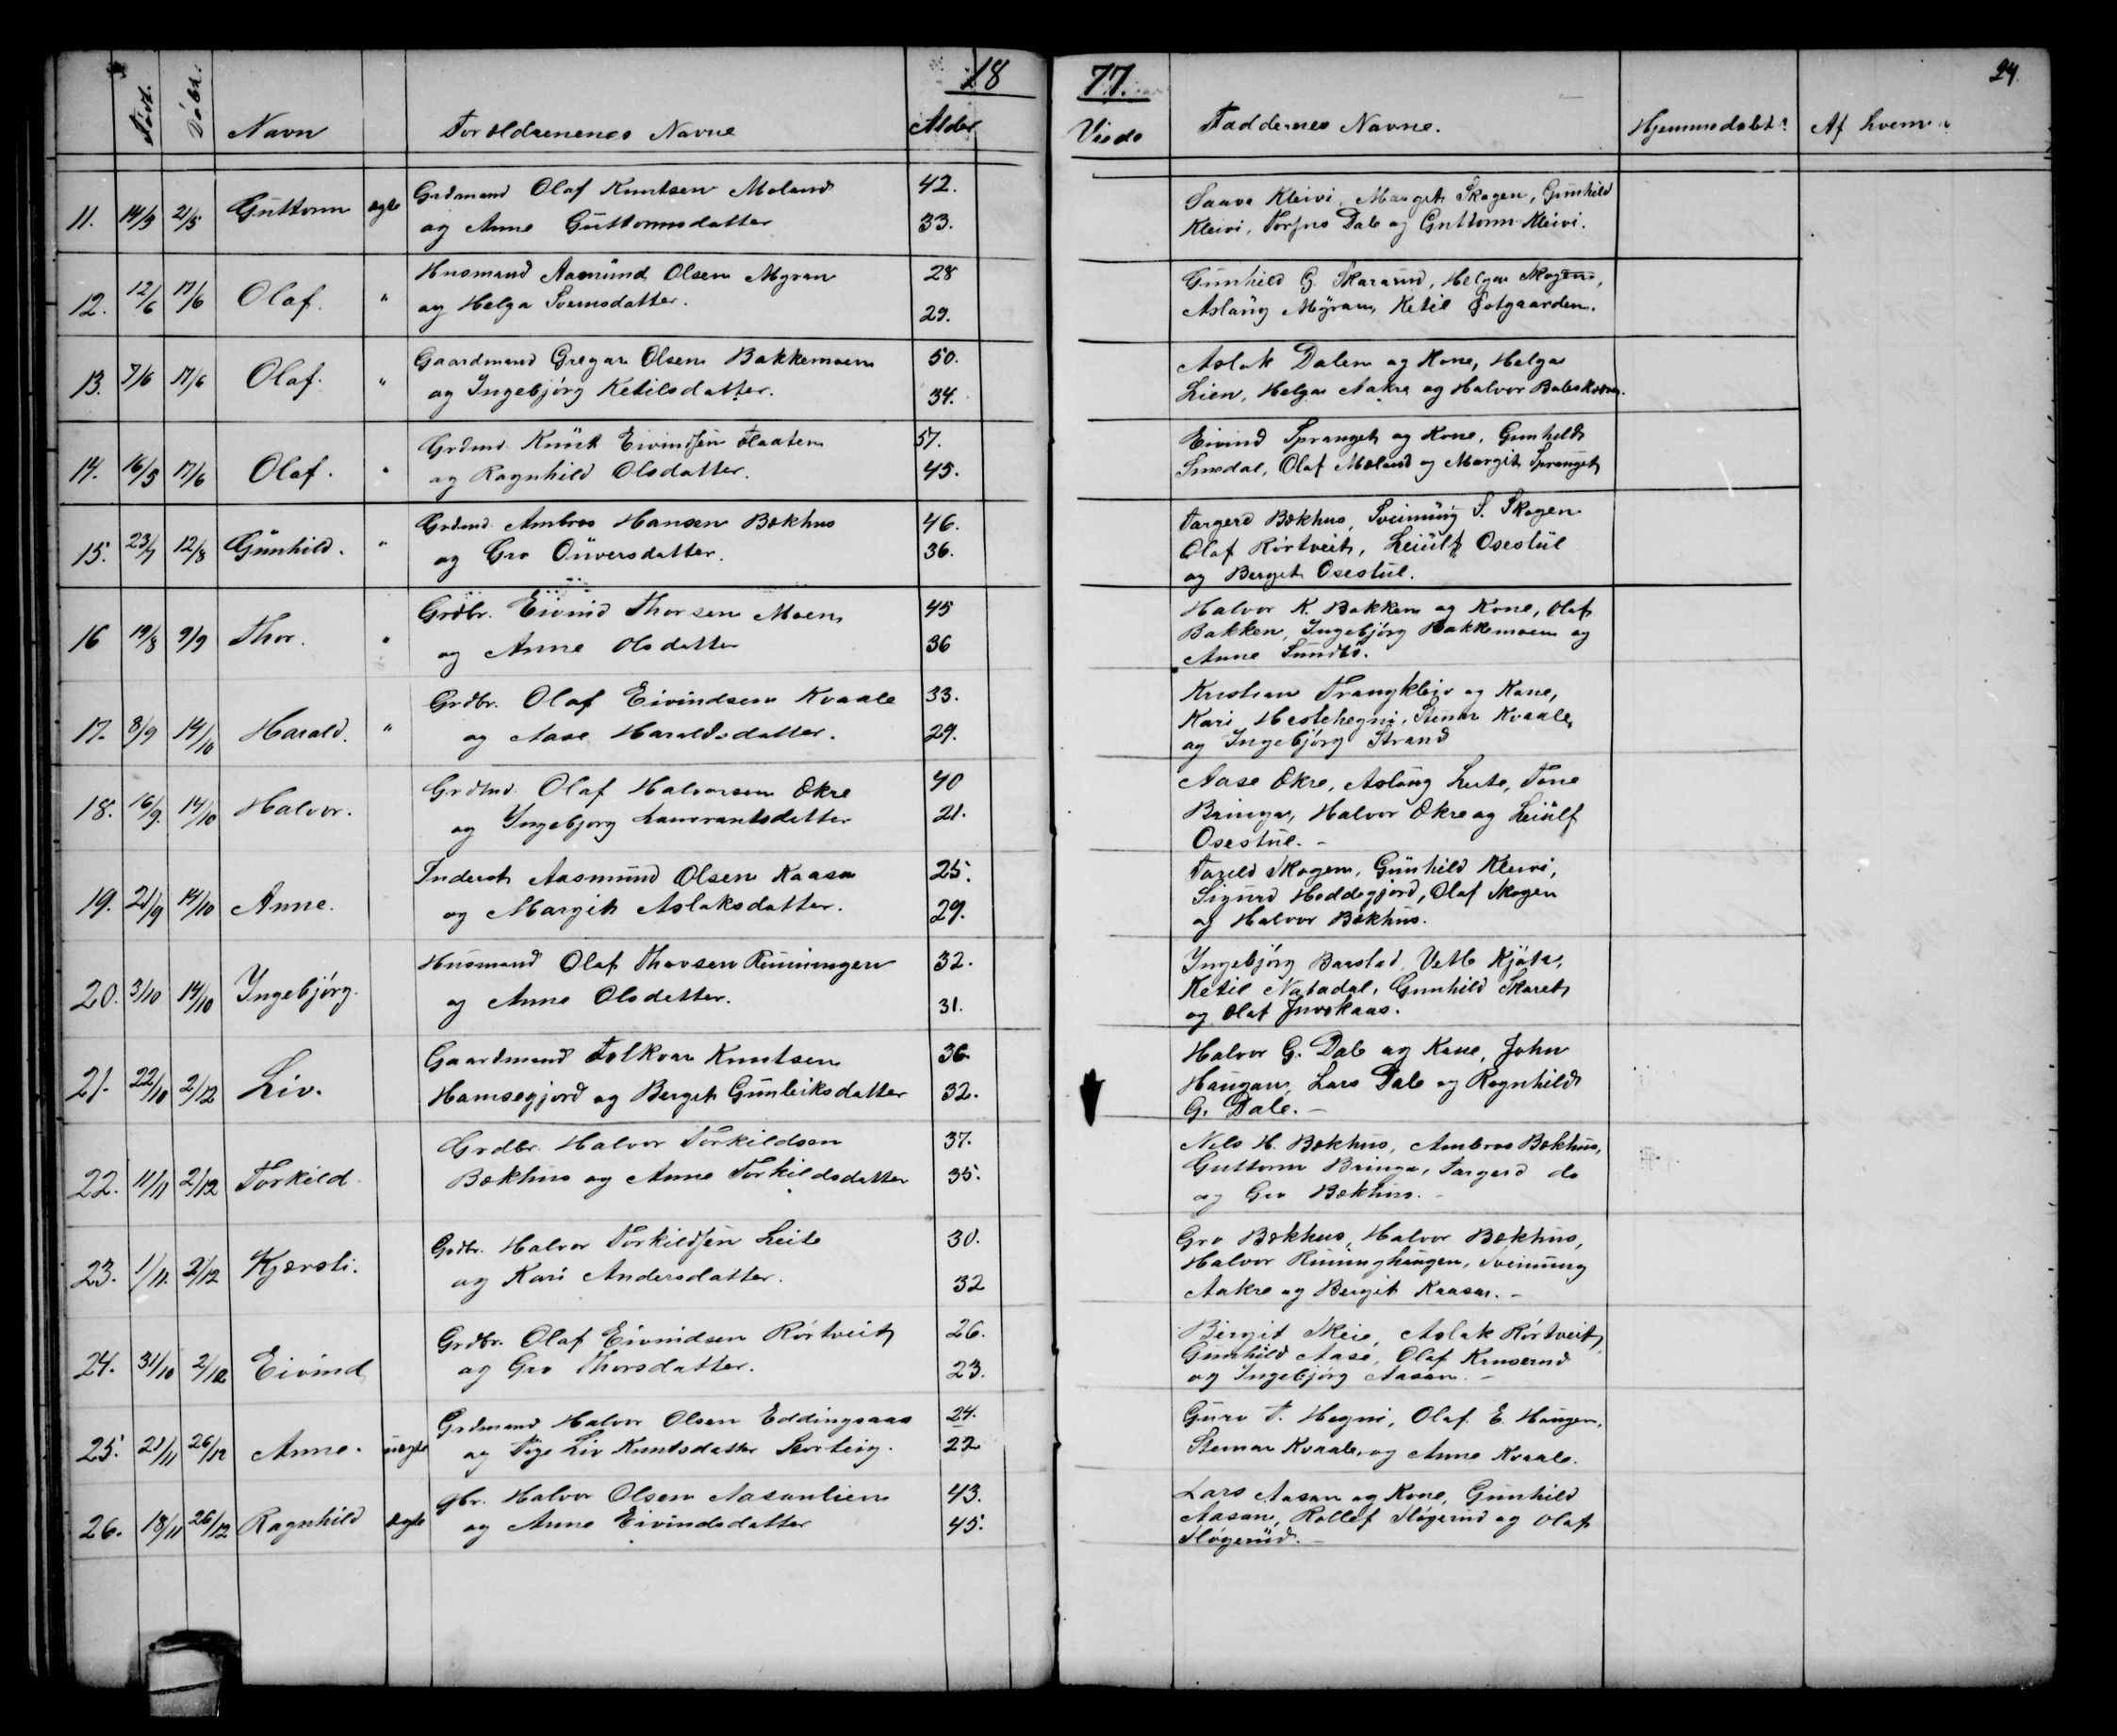 1877.
24.
Født. Døbt. Navn Forældrenenes Navne Alder Viede Faddernes Navne. Hjemmedøbt? Af hvem?
11. 14/3 21/5 Guttorm ægte Grdmand Olaf Knutsen Moland 42. Saave Kleivi, Margit Skogen, Gunhild
og Anne Guttormsdatter 33. Kleivi, Torjus Dale og Guttorm Kleivi.
12. 12/6 17/6 Olaf. " Husmand Aasmund Olsen Myran 28 Gunhild G. Skarasud, Helga Skogen,
og Helga Svensdatter. 29. Aslaug Myran, Ketil
13. 7/6 17/6 Olaf. " Gaardmand Gregar Olsen Bakkemoen 50. Aslak Dalen og Kone, Helga
og Ingebjørg Ketilsdatter. 34. Lien, Helga Aakre og Halvor
14. 16/5 17/6 Olaf. " Grdmd. Knut Eivindsen Flaaten 57. Eivind Spranget og Kone, Gunhild
og Ragnhild Olsdatter. 45. Olaf Moland og Margit Spranget
15. 23/7 12/8 Gunhild. " Grdmd. Ambros Hansen Bækhus 46. Targerd Bækhus, Sveinung S. Skogen
og Gro Ouversdatter. 36. Olaf Rörtveit, Leiulf Osestul
og Berget Osestul.
16 19/8 9/9 Thor. " Grdbr. Eivind Thorsen Moen 45 Halvor K. Bakken og Kone, Olaf
og Anne Olsdatter 36 Bakken, Ingebjörg Bakkemoen og
Anne Sundbö.
17. 8/9 14/10 Harald. " Grdbr. Olaf Eivindsen Kvaale 33. Kristian Trangkleiv og Kone,
og Aase Haraldsdatter. 29. Kari Hestehegni, Stenar Kvaale,
og Ingebjörg Strand
18. 16/9. 14/10 Halvor. Grdmd. Olaf Halvorsen Økre 40 Aase Økre, Aslaug Leite, Tone
og Ingebjorg Lavrantsdatter 21. Bringa, Halvor Økre og Leiulf
Osestul. -
19. 21/9 14/10 Anne. Inderst Aasmund Olsen Kaasa 25. Torild Skogen, Gunhild Kleivi,
og Margit Aslaksdatter. 29. Sigurd Heddegjord, Olaf Skogen
og Halvor Bækhus.
20. 3/10 14/10 Ingebjörg. Husmand Olaf Thorsen Runingen 32. Ingebjörg Barstad, Vetle Kjöta,
og Anne Olsdetter. 31. Ketil Natadal, Gunhild Skaret
og Olaf Juvskaas.
21. 22/10 2/12 Liv. Gaardmand Folkvar Knutsen 36. Halvor G. Dale og Kone, John
Hamsegjord og Berget Gunleiksdatter 32. Haugan, Lars Dale og Ragnhild
G. Dale. -
22. 11/11 2/12 Torkild. Grdbr. Halvor Torkildsen 37. Nils H. Bækhus, Ambros Bækhus,
Bækhus og Anne Torkildsdatter 35. Guttorm Bringa, Targerd do
og Gro Bækhus. -
23. 1/11. 2/12 Kjersti. Grdbr. Halvor Torkildsen Leite 30. Gro Bækhus, Halvor Bækhus,
og Kari Andersdatter. 32 Halvor Runinghaugen, Sveinung
Aakre og Bergit Kaasa. -
24. 31/10 2/12 Eivind Grdbr. Olaf Eivindsen Rörtveit 26. Birgit Skeie, Aslak Rörtveit,
og Gro Thorsdatter. 23. Gunhild Aase, Olaf Kruserud
og Ingebjörg Aasan. -
25. 21/11 26/12 Anne. uægte Grdmand Halvor Olsen Eddingsaas 24. Guro T. Hegni, Olaf E. Haugen,
og Pige Liv Knutsdatter 22 Stenar Kvaale, og Anne Kvaale.
26. 18/11 26/12 Ragnhild ægte Gbr. Halvor Olsen Aasanlien 43. Lars Aasan og Kone, Gunhild
og Anne Eivindsdatter 45. Aasan, Rollef Slögerud og Olaf
Slögerud. -